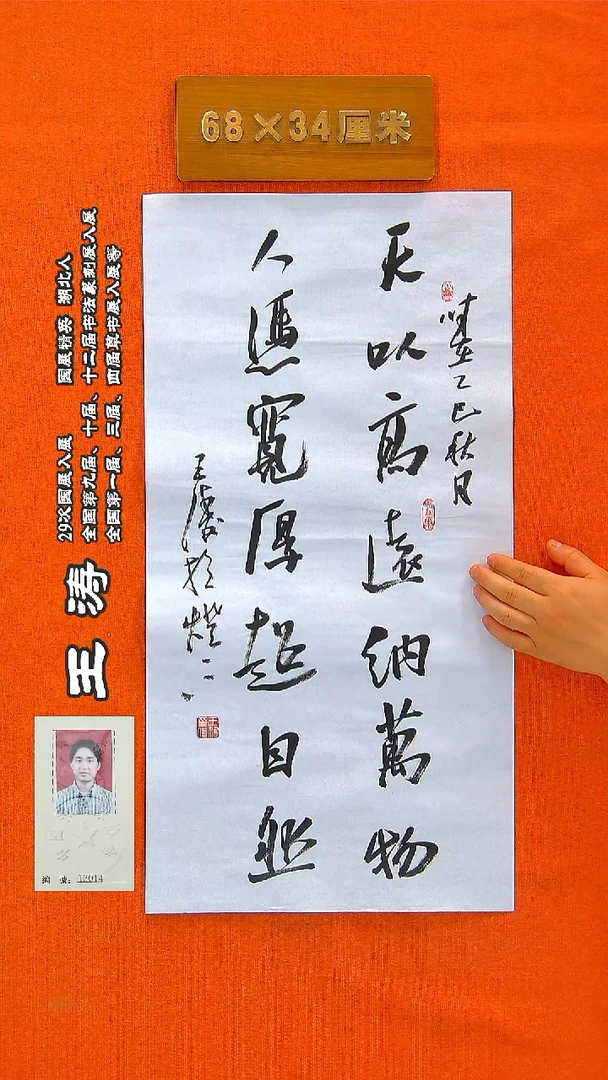 68×34厘米
时在乙巳秋月
天以高遠纳萬物
人憑寬厚起自然
王涛於燈下
王涛
29次国展入展 国展精英 湖北人
全国第九届、十届、十二届书法篆刻展入展
全国第一届、三届、四届草书展入展等
编号：12014